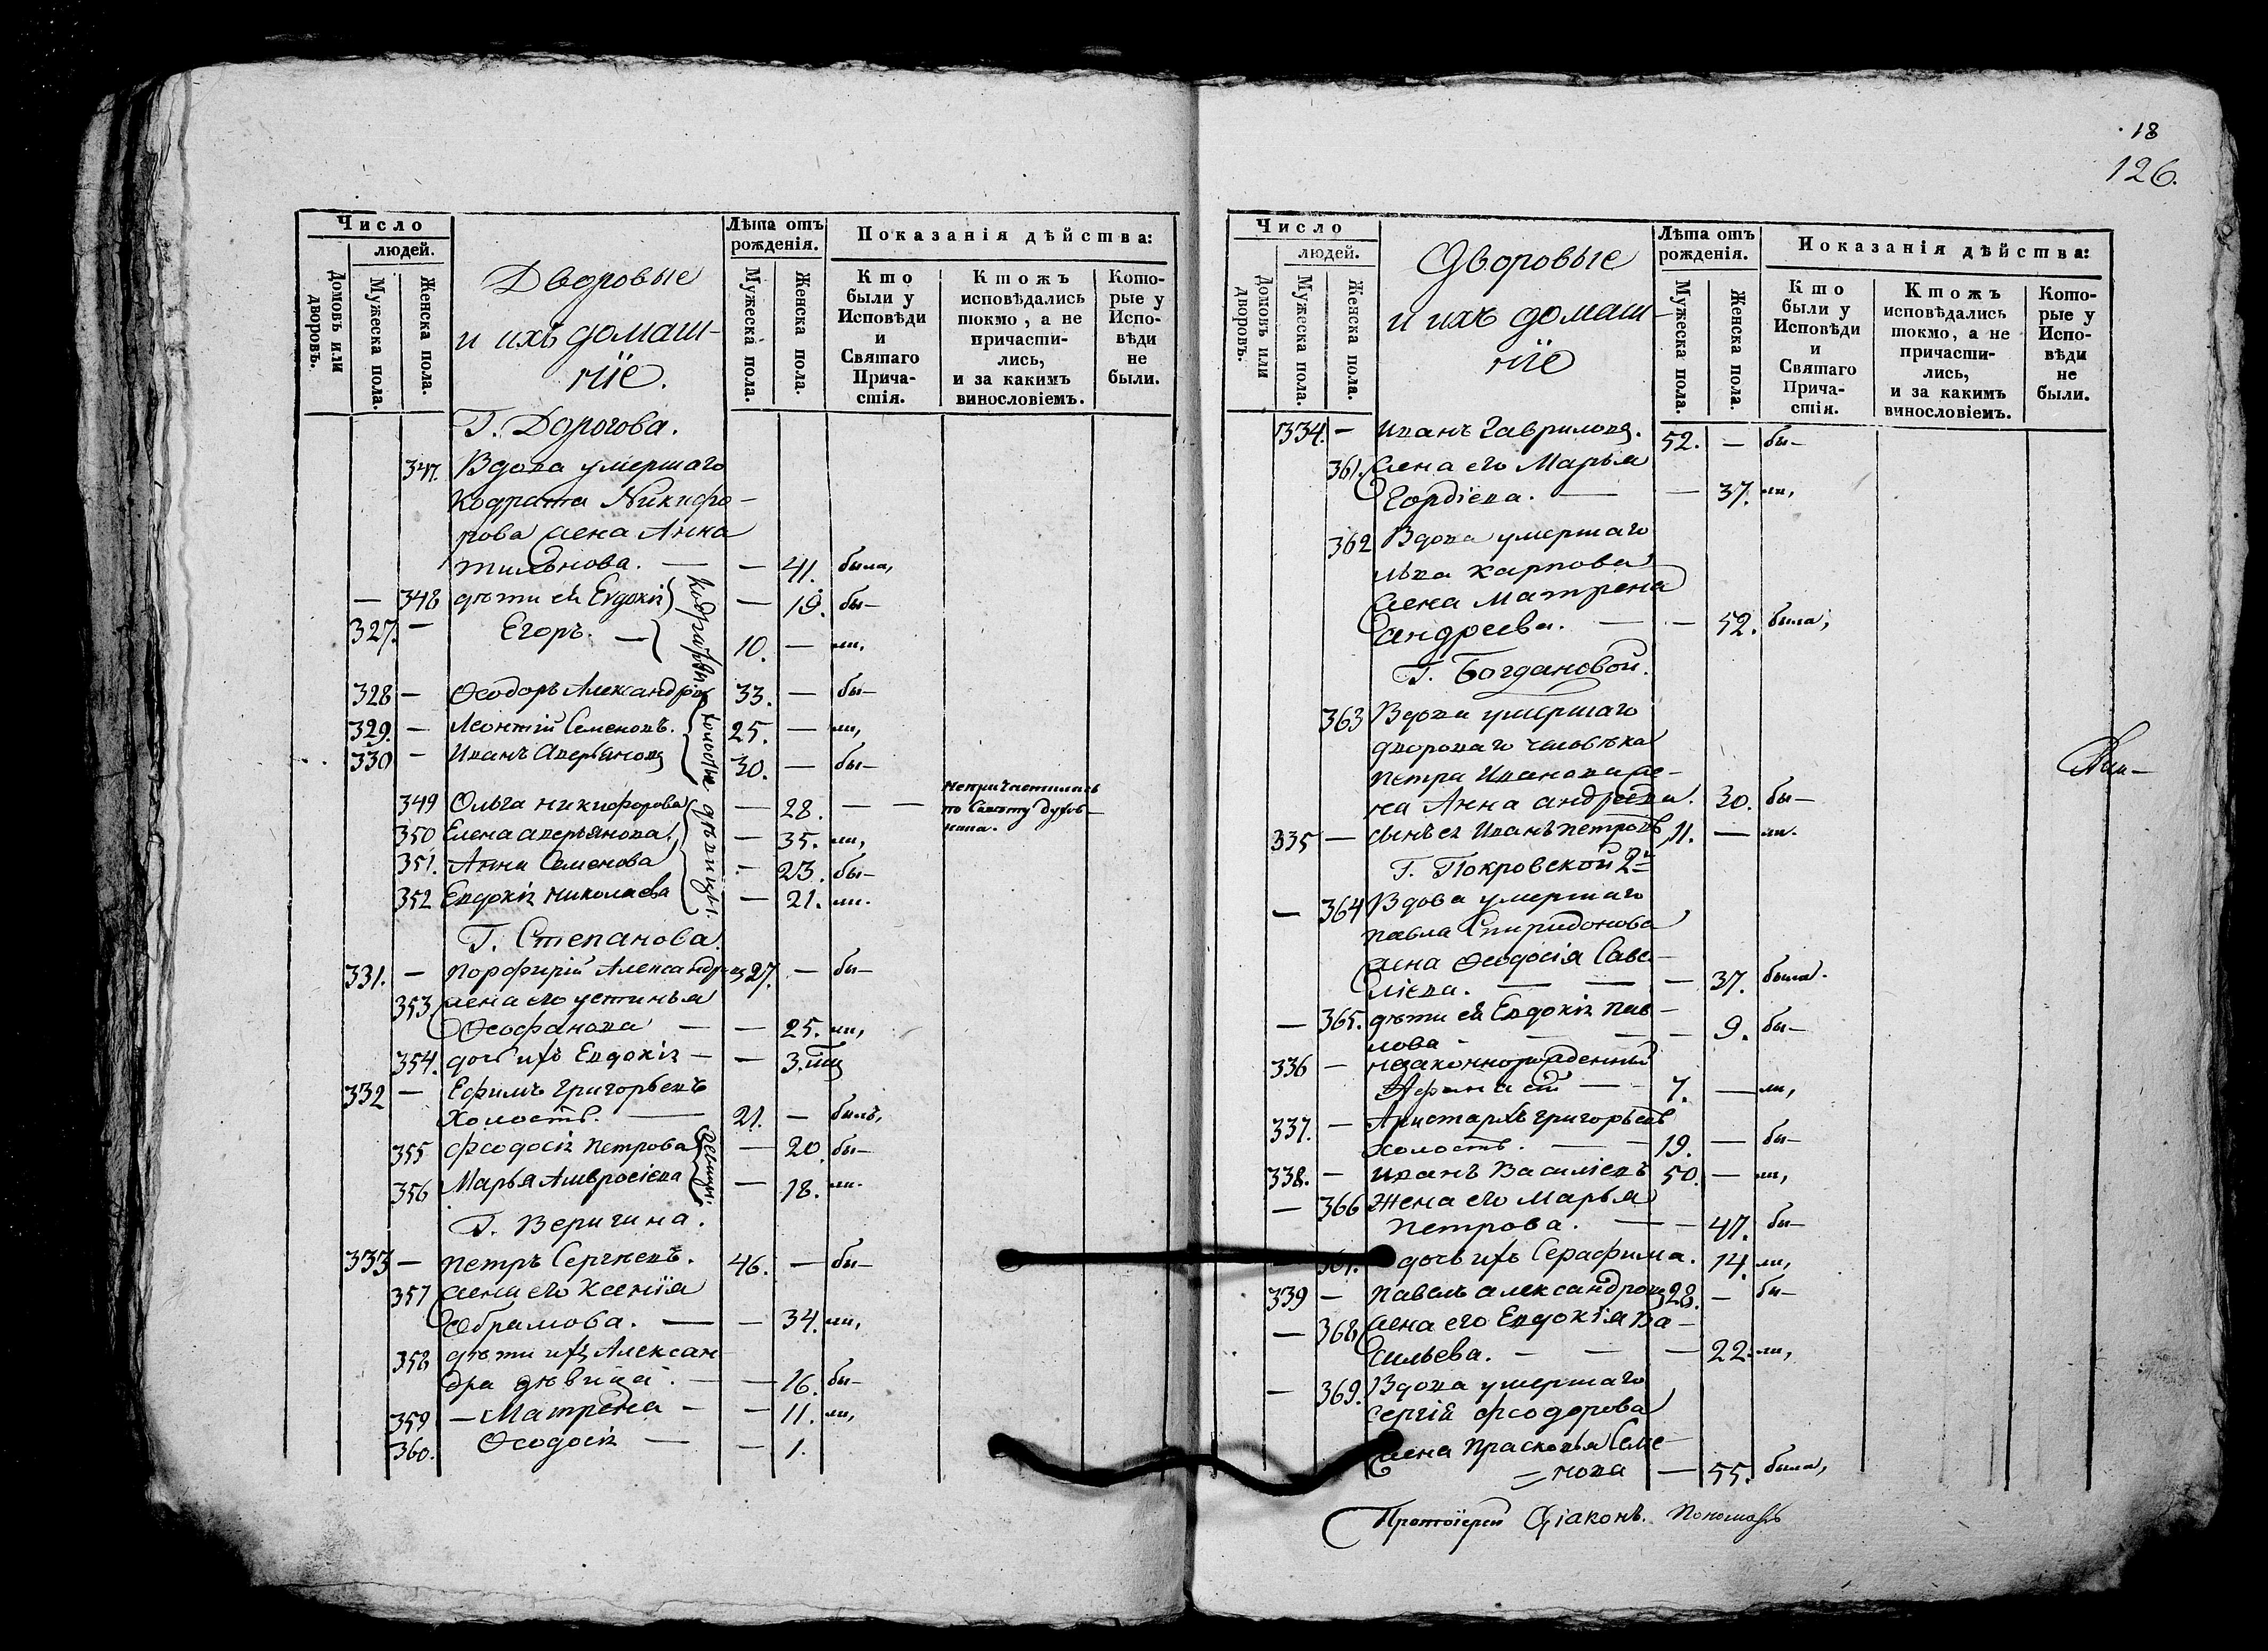 Число
людей.
Домовъ или дворовъ.
Мужеска пола.
Женска пола.
Дворовые
и ихъ домаш-
ніе.
Лѣта отъ
рожденія.
Мужеска пола.
Женска пола.
Показанія дѣйства:
Кто
были у
Исповѣди
и
Святаго
Прича-
стія.
Ктожъ
исповѣдались
токмо, а не
причасти-
лись,
и за какимъ
винословіемъ.
Кото-
рые у
Испо-
вѣди
не
были.
Г. Дорогова.
347. Вдова умершаго
Кодрата Никифо-
рова жена Анна
— 41. была,
— 348 дѣти ей Евдокія — 19. бы-
327. — Егоръ. — 10. — ли,
328 — Ѳеодоръ Александровъ 33. — бы-
329. — Леонтій Семеновъ. 25. — ли,
330 — Иванъ Аверьяновъ 30. — бы-
холосты
349 Ольга Никифорова — 28. — — непричастилась
по совѣту духов-
ника.
350 Елена Аверьянова — 35. ли,
351. Анна Семенова — 23. бы-
352 Евдокія Николаева — 21. ли.
дѣвицы.
Г. Степанова.
331. — Порфирій Александровъ 27. — бы-
353. жена его Устинья
Ѳеофанова — — 25. ли,
354. дочь ихъ Евдокія — — 3.
332 — Ефимъ Григорьевъ
Холостъ. — 21. — былъ,
355 Феодосія Петрова — 20. бы-
356 Марья Амвросіева — 18. ли.
девицы.
Г. Веригина.
333 — Петръ Сергѣевъ. 46. — бы-
357 жена его Ксенія
Абрамова. — — 34. ли,
358 дѣти ихъ Алексан
дра дѣвица. — — 16. бы-
359 — Матрена — — 11. ли,
360. Ѳеодосія — — 1.
18
126.
Число
людей.
Домовъ или дворовъ.
Мужеска пола.
Женска пола.
Дворовые
и ихъ домаш-
ніе
Лѣта отъ
рожденія.
Мужеска пола.
Женска пола.
Показанія дѣйства:
Кто
были у
Исповѣди
и
Святаго
Прича-
стія.
Ктожъ
исповѣдались
токмо, а не
причасти-
лись,
и за какимъ
винословіемъ.
Кото-
рые у
Испо-
вѣди
не
были.
334. — Иванъ Гавриловъ. 52. — бы-
361. жена его Марья
Гордіева. — — 37. ли,
362 Вдова умершаго
Льва Карпова
жена Матрена
Андреева. — — 52. была;
Г. Богдановой.
363 Вдова умершаго
двороваго человѣка
Петра Иванова же-
на Анна Андреева. 30. бы-
335 — сынъ ея Иванъ Петровъ 11. — ли.
Г. Покровской 2й
— 364 Вдова умершаго
Павла Спиридонова
жена Ѳеодосія Саве-
ліева. — — — 37. была.
— 365. дѣти ей Евдокія Пав-
лова — — — 9. бы-
336 — незаконнорожденный
Афанасій — 7. — ли,
337. — Аристархъ Григорьевъ
холостъ. — — 19. — бы-
338. — Иванъ Василіевъ 50. — ли,
— 366 Жена его Марья
Петрова. — — 47. бы-
367. дочь ихъ Серафима. 14. ли,
339 — Павелъ Александровъ 28. — бы-
— 368 жена его Евдокія Ва-
сильева. — — — 22. ли,
— 369. Вдова умершаго
Сергія Феодорова
жена Прасковья Семе-
нова — 55. была,
Протоіерей Діаконъ. Пономарь